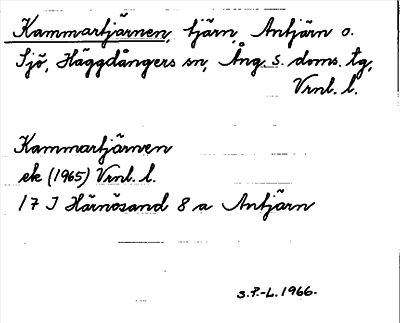 Kammartjärnen, tjärn, Antjärn o.
Sjö, Häggdångers sn, Ång. s. doms. tg,
Vrnl. l.
Kammartjärnen
ek (1965) Vrnl. l.
17 J Härnösand 8 a Antjärn
S.P.-L. 1966.